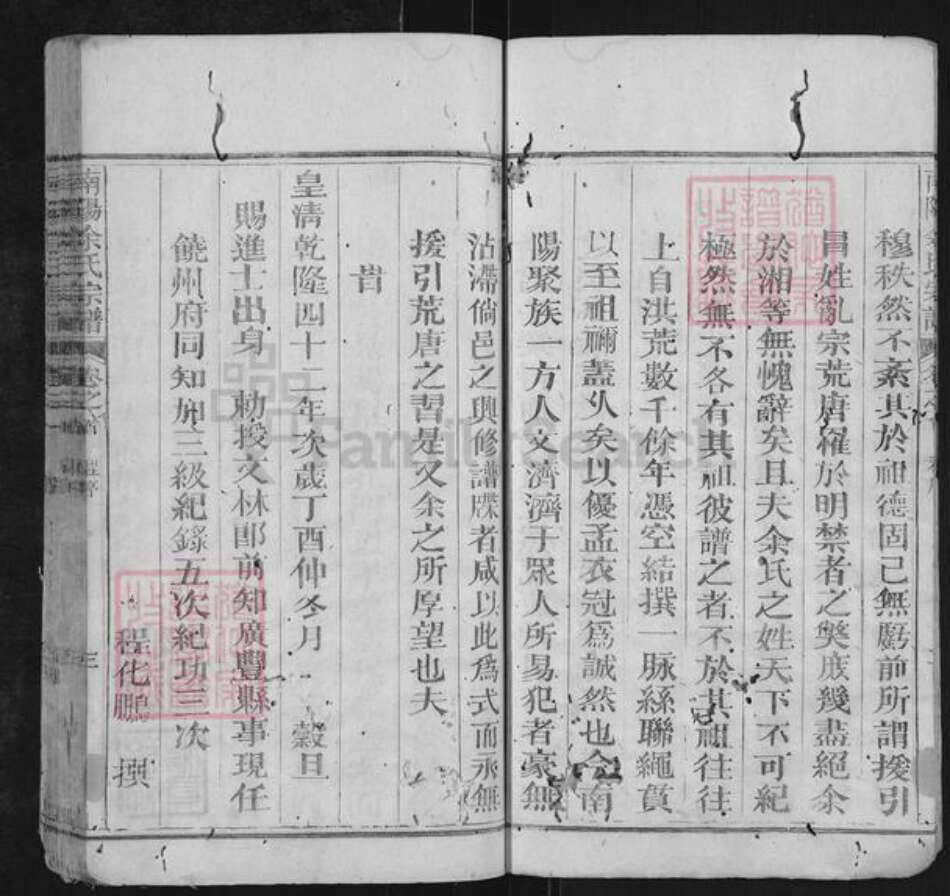 穆秩然不紊其於祖德固已無虧前所謂援引
冒姓亂宗荒唐罹於明禁者之獘庶幾盡絕余
於湘等無愧辭矣且夫余氏之姓天下不可紀
極然無不各有其祖彼譜之者不於其祖往往
上自洪荒數千餘年憑空結撰一脉絲聯繩貫
以至祖禰蓋久矣以優孟衣冠為誠然也今南
陽聚族一方人文濟濟于眾人所易犯者豪無
沾滯倘邑之興修譜牒者咸以此為式而永無
援引荒唐之習是又余之所厚望也夫
旹
皇清乾隆四十二年次歲丁酉仲冬月 穀旦
賜進士出身 勅授文林郎前知廣豐縣事現任
饒州府同知加三級紀錄五次紀功三次
程化鵬 撰
南陽余氏宗譜 卷之首
FamilySearch